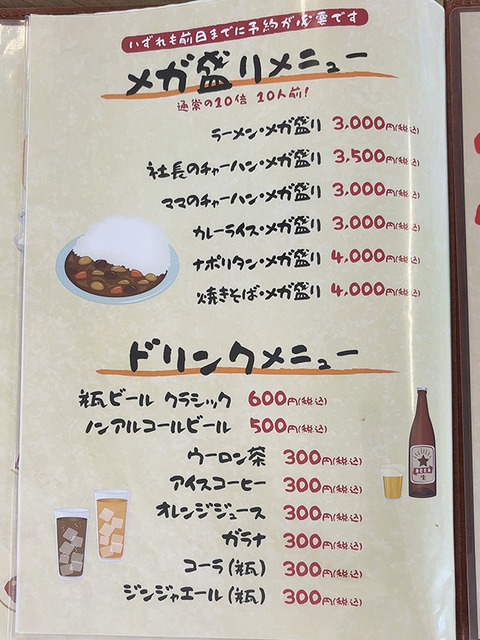 いずれも前日までに予約が必要です
メガ盛りメニュー
通常の10倍 10人前!
ラーメン・メガ盛り 3,000円(税込)
社長のチャーハン・メガ盛り 3,500円(税込)
ママのチャーハン・メガ盛り 3,000円(税込)
カレーライス・メガ盛り 3,000円(税込)
ナポリタン・メガ盛り 4,000円(税込)
焼きそば・メガ盛り 4,000円(税込)
ドリンクメニュー
瓶ビール クラシック 600円(税込)
ノンアルコールビール 500円(税込)
ウーロン茶 300円(税込)
アイスコーヒー 300円(税込)
オレンジジュース 300円(税込)
ガラナ 300円(税込)
コーラ(瓶) 300円(税込)
ジンジャエール(瓶) 300円(税込)
BEER
生